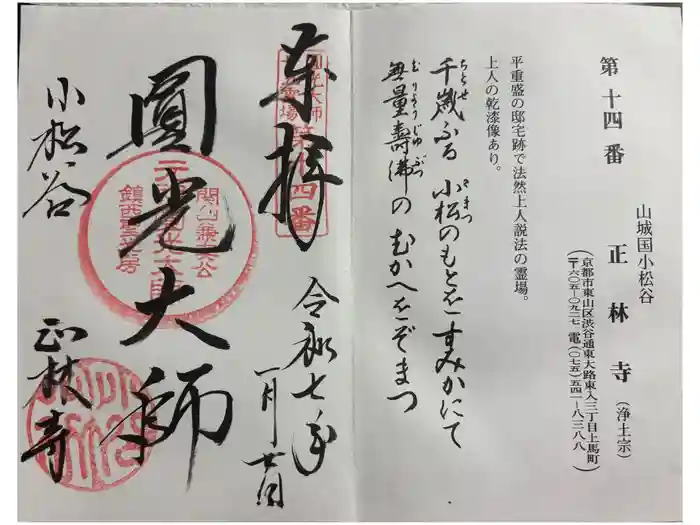 第十四番
山城国小松谷
正林寺(浄土宗)
(京都市東山区渋谷通東大路東入三丁目上馬町
(〒六〇五-〇九二七 電(〇七五)五四一-八三八八
平重盛の邸宅跡で法然上人説法の霊場。
上人の乾漆像あり。
千歳ふる 小松のもとを すみかにて
ちとせ こまつ
無量壽佛の むかへをぞまつ
むりょうじゅぶつ
奉拝
圓光大師
霊場
第十四番
令和七年
一月廿日
圓光大師
関白兼実公
元祖圓光大師
鎮西聖光房
小松谷
正林寺